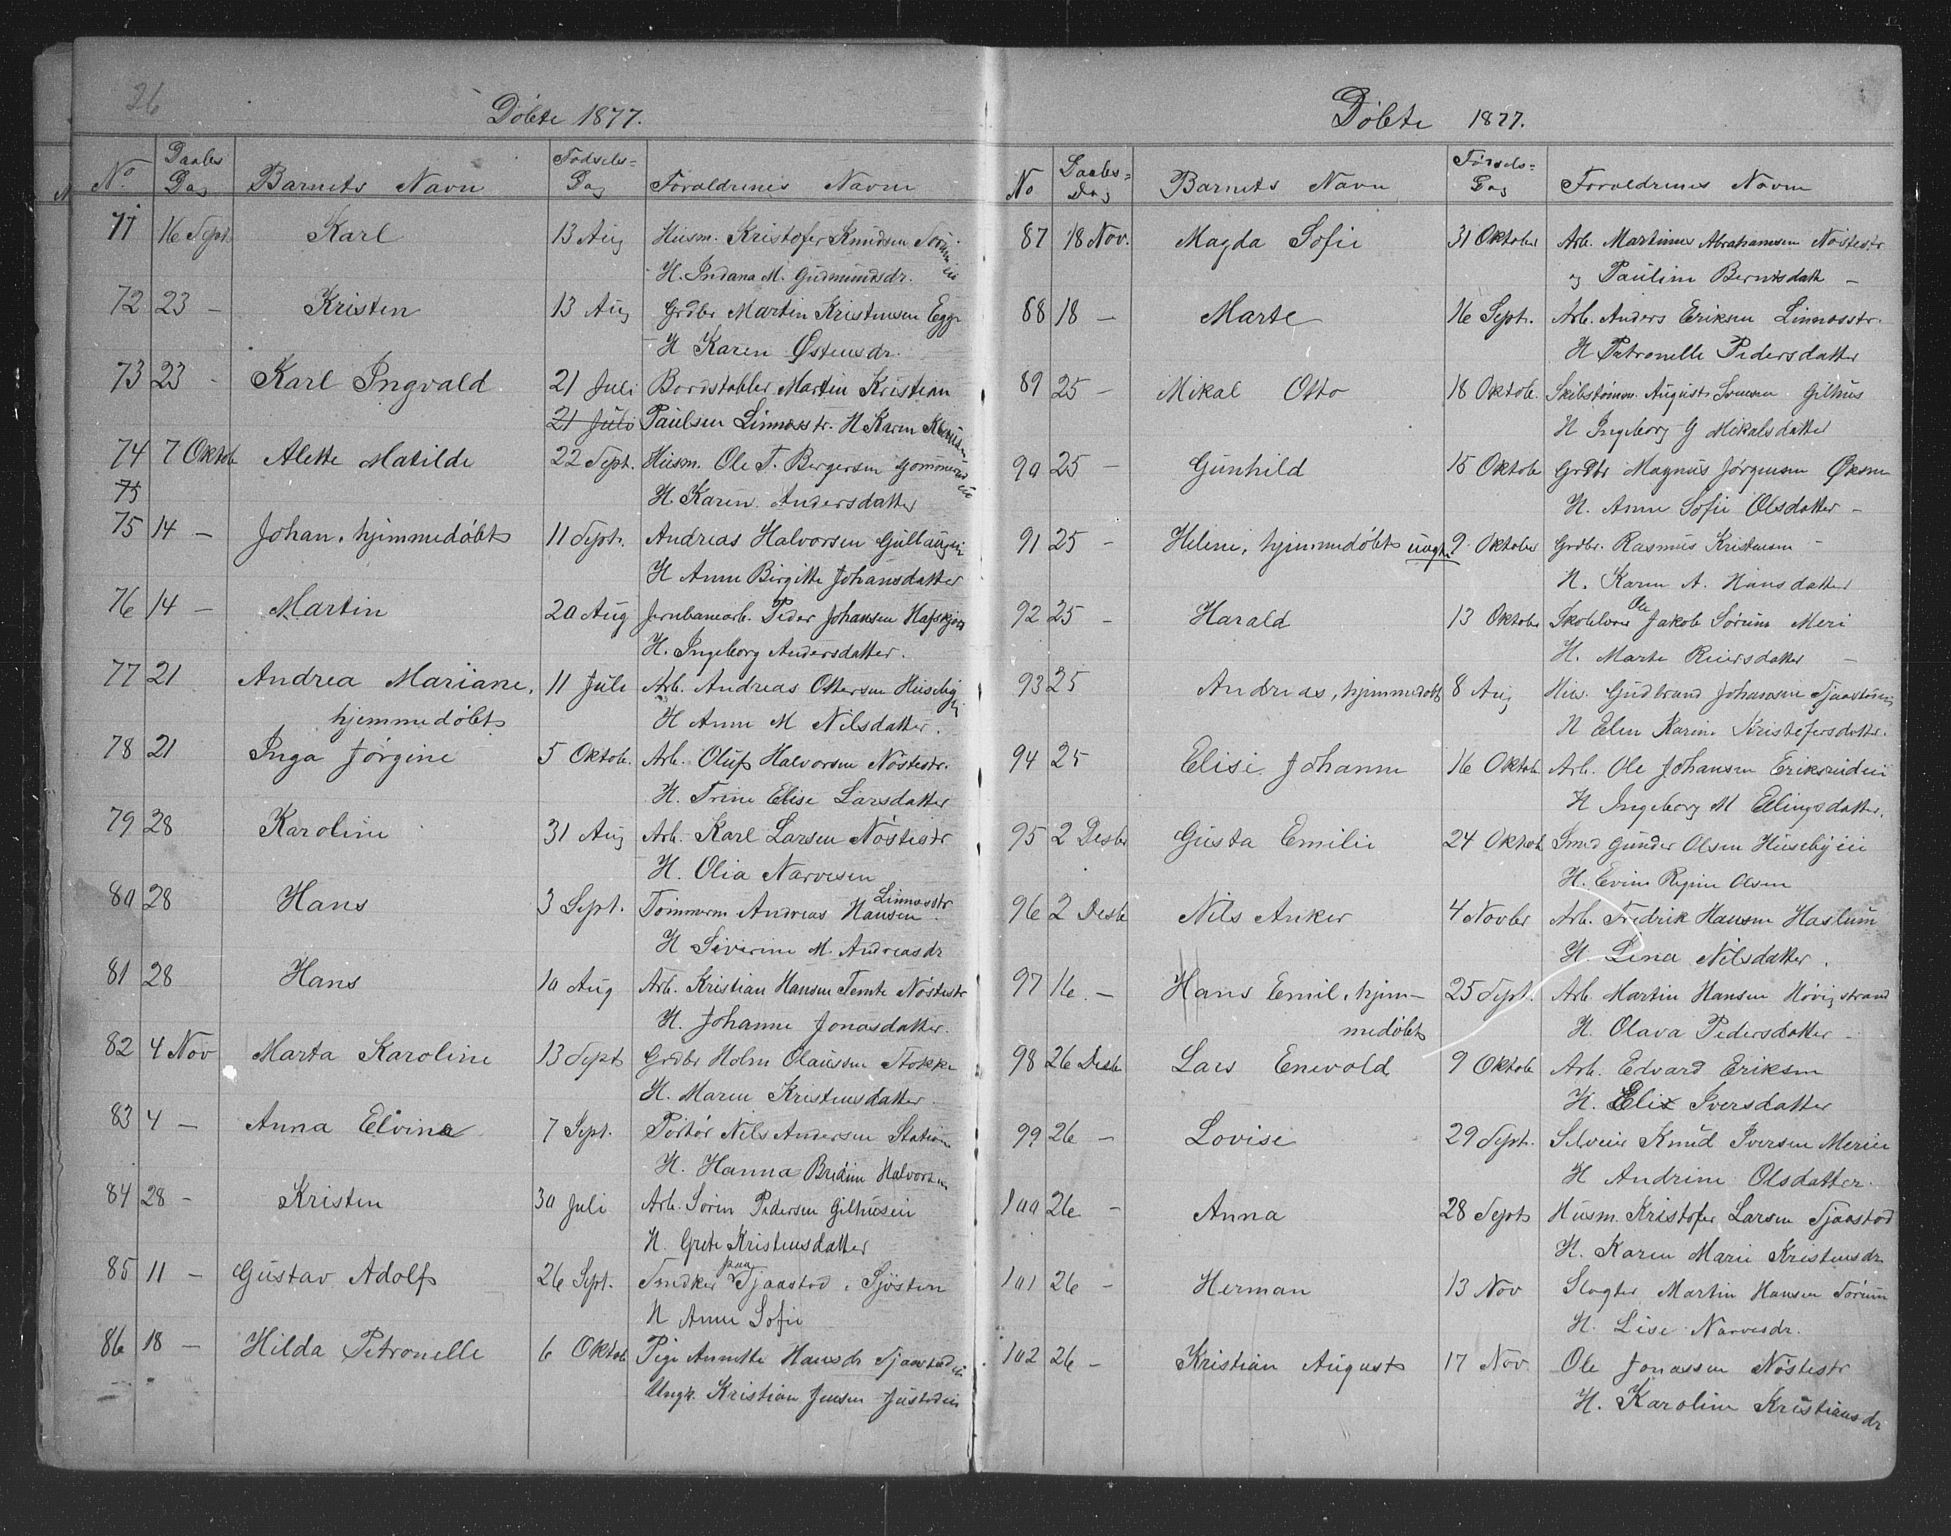 26
Döbte 1877.
No. Daabs Dag Barnets Navn Födsels= Dag Foraldrenes Navn
71 16 Sept. Karl 13 Aug Husm. Kristofer Knudsen
H. Indiana M. Gudmundsdr.
72 23 - Kristen 13 Aug Grdbr Martin Kristensen Egge
H Karen Østensdr.
73 23 - Karl Ingvald 21 Juli Bordstabler Martin Kristian
21 Juli Paulsen Linnesstr. H Karen
74 7 Oktob Alette Matilde 22 Sept. Husm. Ole T. Bergersen
75 H. Karen Andersdatter
75 14 - Johan, hjemmedöbt 11 Sept. Andreas Halvorsen Gullaugeie
H Anne Birgitte Johansdatter
76 14 - Martin 20 Aug Jernbanearb. Peder Johansen
H. Ingeborg Andersdatter.
77 21 Andrea Mariane, 11 Juli Arb. Andreas Ottersen Husebyeie
hjemmedöbt H Anne M Nilsdatter.
78 21 Inga Jörgine 5 Oktob. Arb. Oluf Halvorsen Nöstestr.
H. Trine Elise Larsdatter
79 28 Karoline 31 Aug Arb. Karl Larsen Nöstestr
H. Olia Narvesen
80 28 Hans 3 Sept. Tömmerm Andreas Hansen Linnesstr
H Siverine M. Andreasdr
81 28 Hans 10 Aug Arb. Kristian Hansen Temte Nöstestr
H. Johanne Jonasdatter.
82 4 Nov Marta Karoline 13 Sept Grdbr Holm Olaussen Stokke
H. Maren Kristensdatter
83 4 - Anna Elvine 7 Sept. Portör Nils Andersen Station
H. Hanna Halvorsen
84 28 - Kristen 30 Juli Arb. Sören Pedersen Gilhuseie
H. Grete Kristensdatter
85 11 - Gustav Adolf 26 Sept. Snedker paa Tjaastad, Sjösten
H Anne Sofie
86 18 - Hilda Petronelle 6 Oktob Pige Annette Hansdr
Ungk. Kristian Jensen
Döbte 1877.
No Daabs= Dag Barnets Navn Födsels= Dag Foraldrenes Navn
87 18 Nov. Magda Sofie 31 Oktober Arb. Martinus Abrahamsen Nöstestr
og Pauline Berntsdatt -
88 18 - Marte 16 Sept. Arb. Anders Eriksen Linnesstr.
H Petronelle Pedersdatter
89 25 - Mikal Otto 18 Oktob. Skibstömm. August Svensen Gilhus
H Ingeborg G Mikalsdatter
90 25 - Gunhild 15 Oktob Grdbr Magnus Jörgensen Øksne
H. Anne Sofie Olsdatter -
91 25 - Helene, hjemmedöbt uægte 9 Oktober Grdbr. Rasmus Kristensen -
H. Karen A. Hansdatter
92 25 - Harald 13 Oktober Skolelærer Ole Jakob Sörum Meri
H. Marte Reiersdatter -
93 25 Andreas, hjemmedöbt 8 Aug Hus. Gudbrand Johansen
H Elen Karine Kristofersdatter.
94 25 Elise Johanne 16 Oktob. Arb. Ole Johansen Eriksrudeie
H Ingeborg M Ellingsdatter.
95 2 Desbr Gusta Emilie 24 Oktob Smed Gunder Olsen Husebyeie
H. Evine Regine Olsen
96 2 Desb Nils Anker 4 Novbr Arb. Fredrik Hansen Haslum
H Lena Nilsdatter.
97 16 - Hans Emil, hjem- 25 Sept. Arb Martin Hansen Hövigstrand
medöbt H. Olava Pedersdatter -
98 26 Desb Lars Enevold 9 Oktob Arb. Edvard Eriksen
H. Elix Iversdatter
99 26 - Lovise 29 Sept. Selveier Knud Iversen Merieie
H Andrine Olsdatter.
100 26 - Anna 28 Sept Husm. Kristofer Larsen Tjaastad
H. Karen Marie Kristensdr
101 26 - Herman 13 Nov Slagter Martin Hansen Sörum
H. Lise Narvesdr.
102 26 - Kristian August 17 Nov Ole Jonassen Nöstestr
H. Karoline Kristiansdr